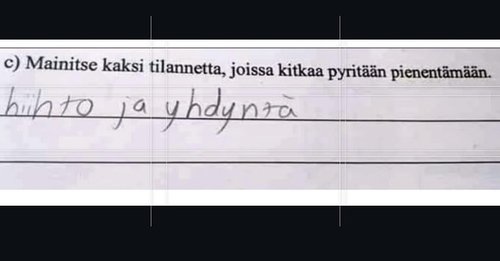 c) Mainitse kaksi tilannetta, joissa kitkaa pyritään pienentämään.
hiihto ja yhdyntä